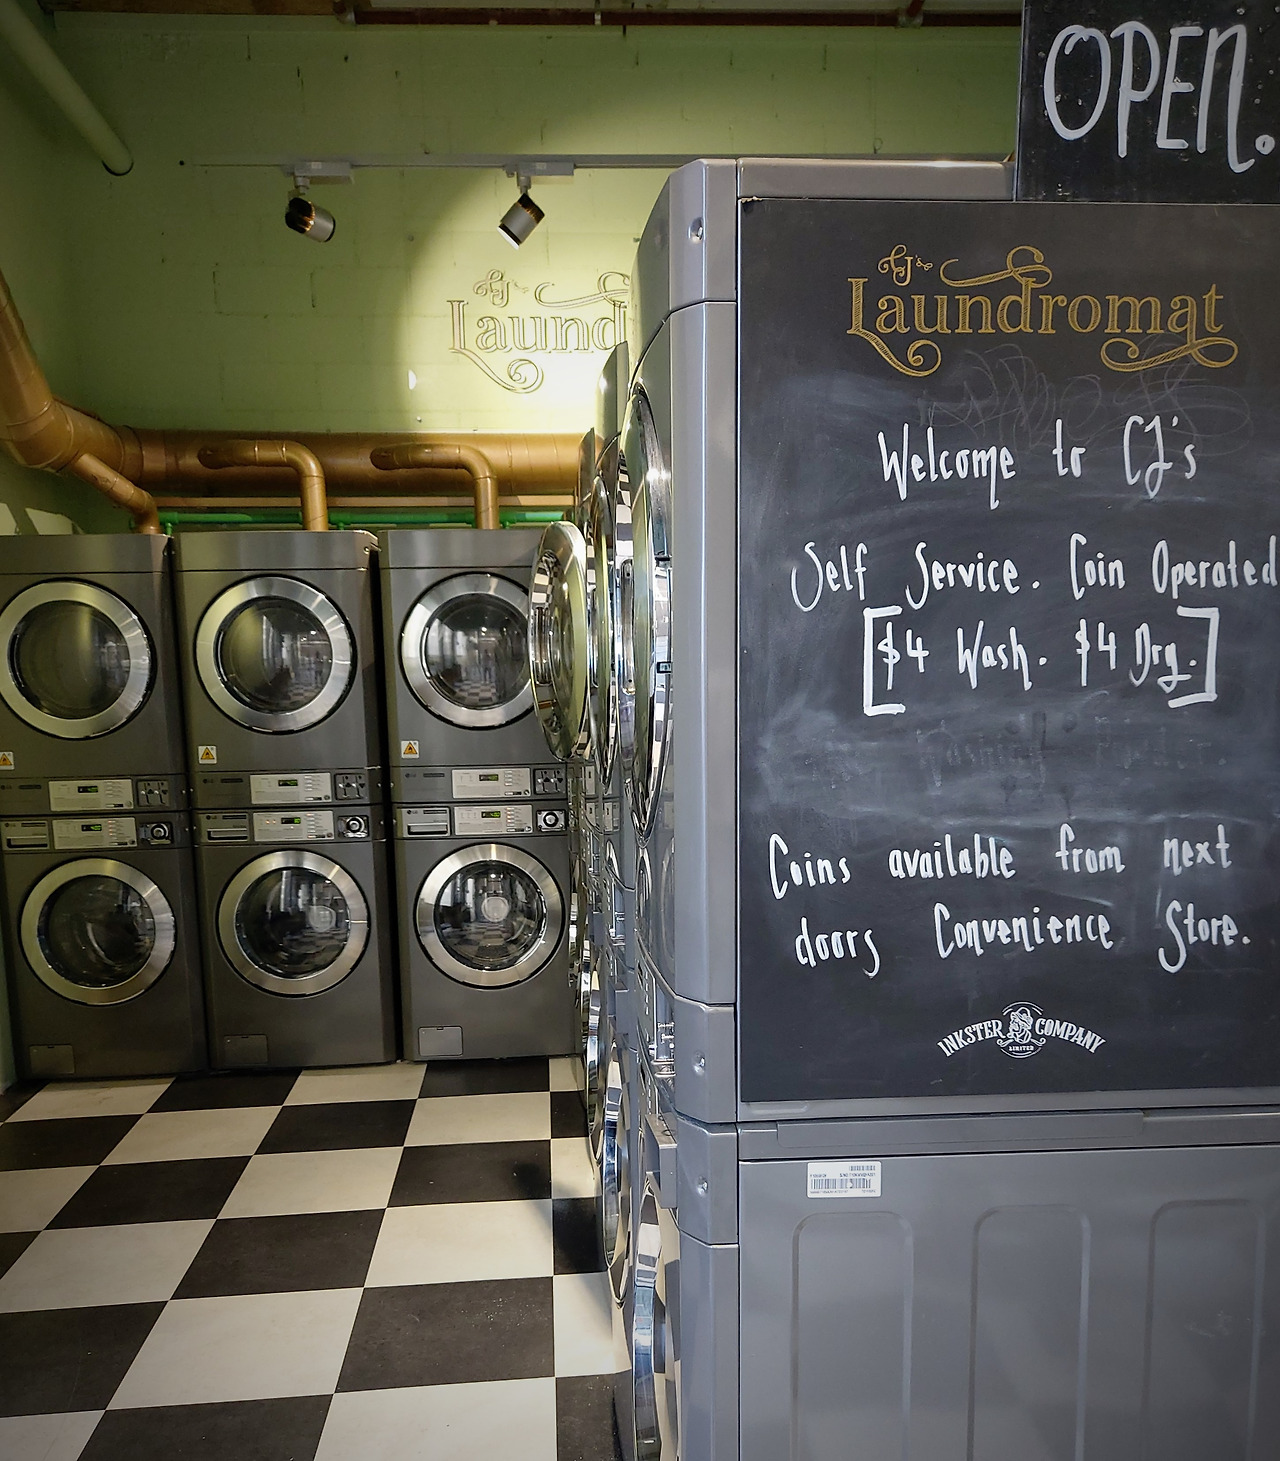 OPEN.
CJ's
Laundromat
CJ's
Laund
Welcome to CJ's
Self Service. Coin Operated
[$4 Wash. $4 Dry.]
Coins available from next
doors Convenience Store.
INKSTER COMPANY
LIMITED
LG
LG
LG
LG